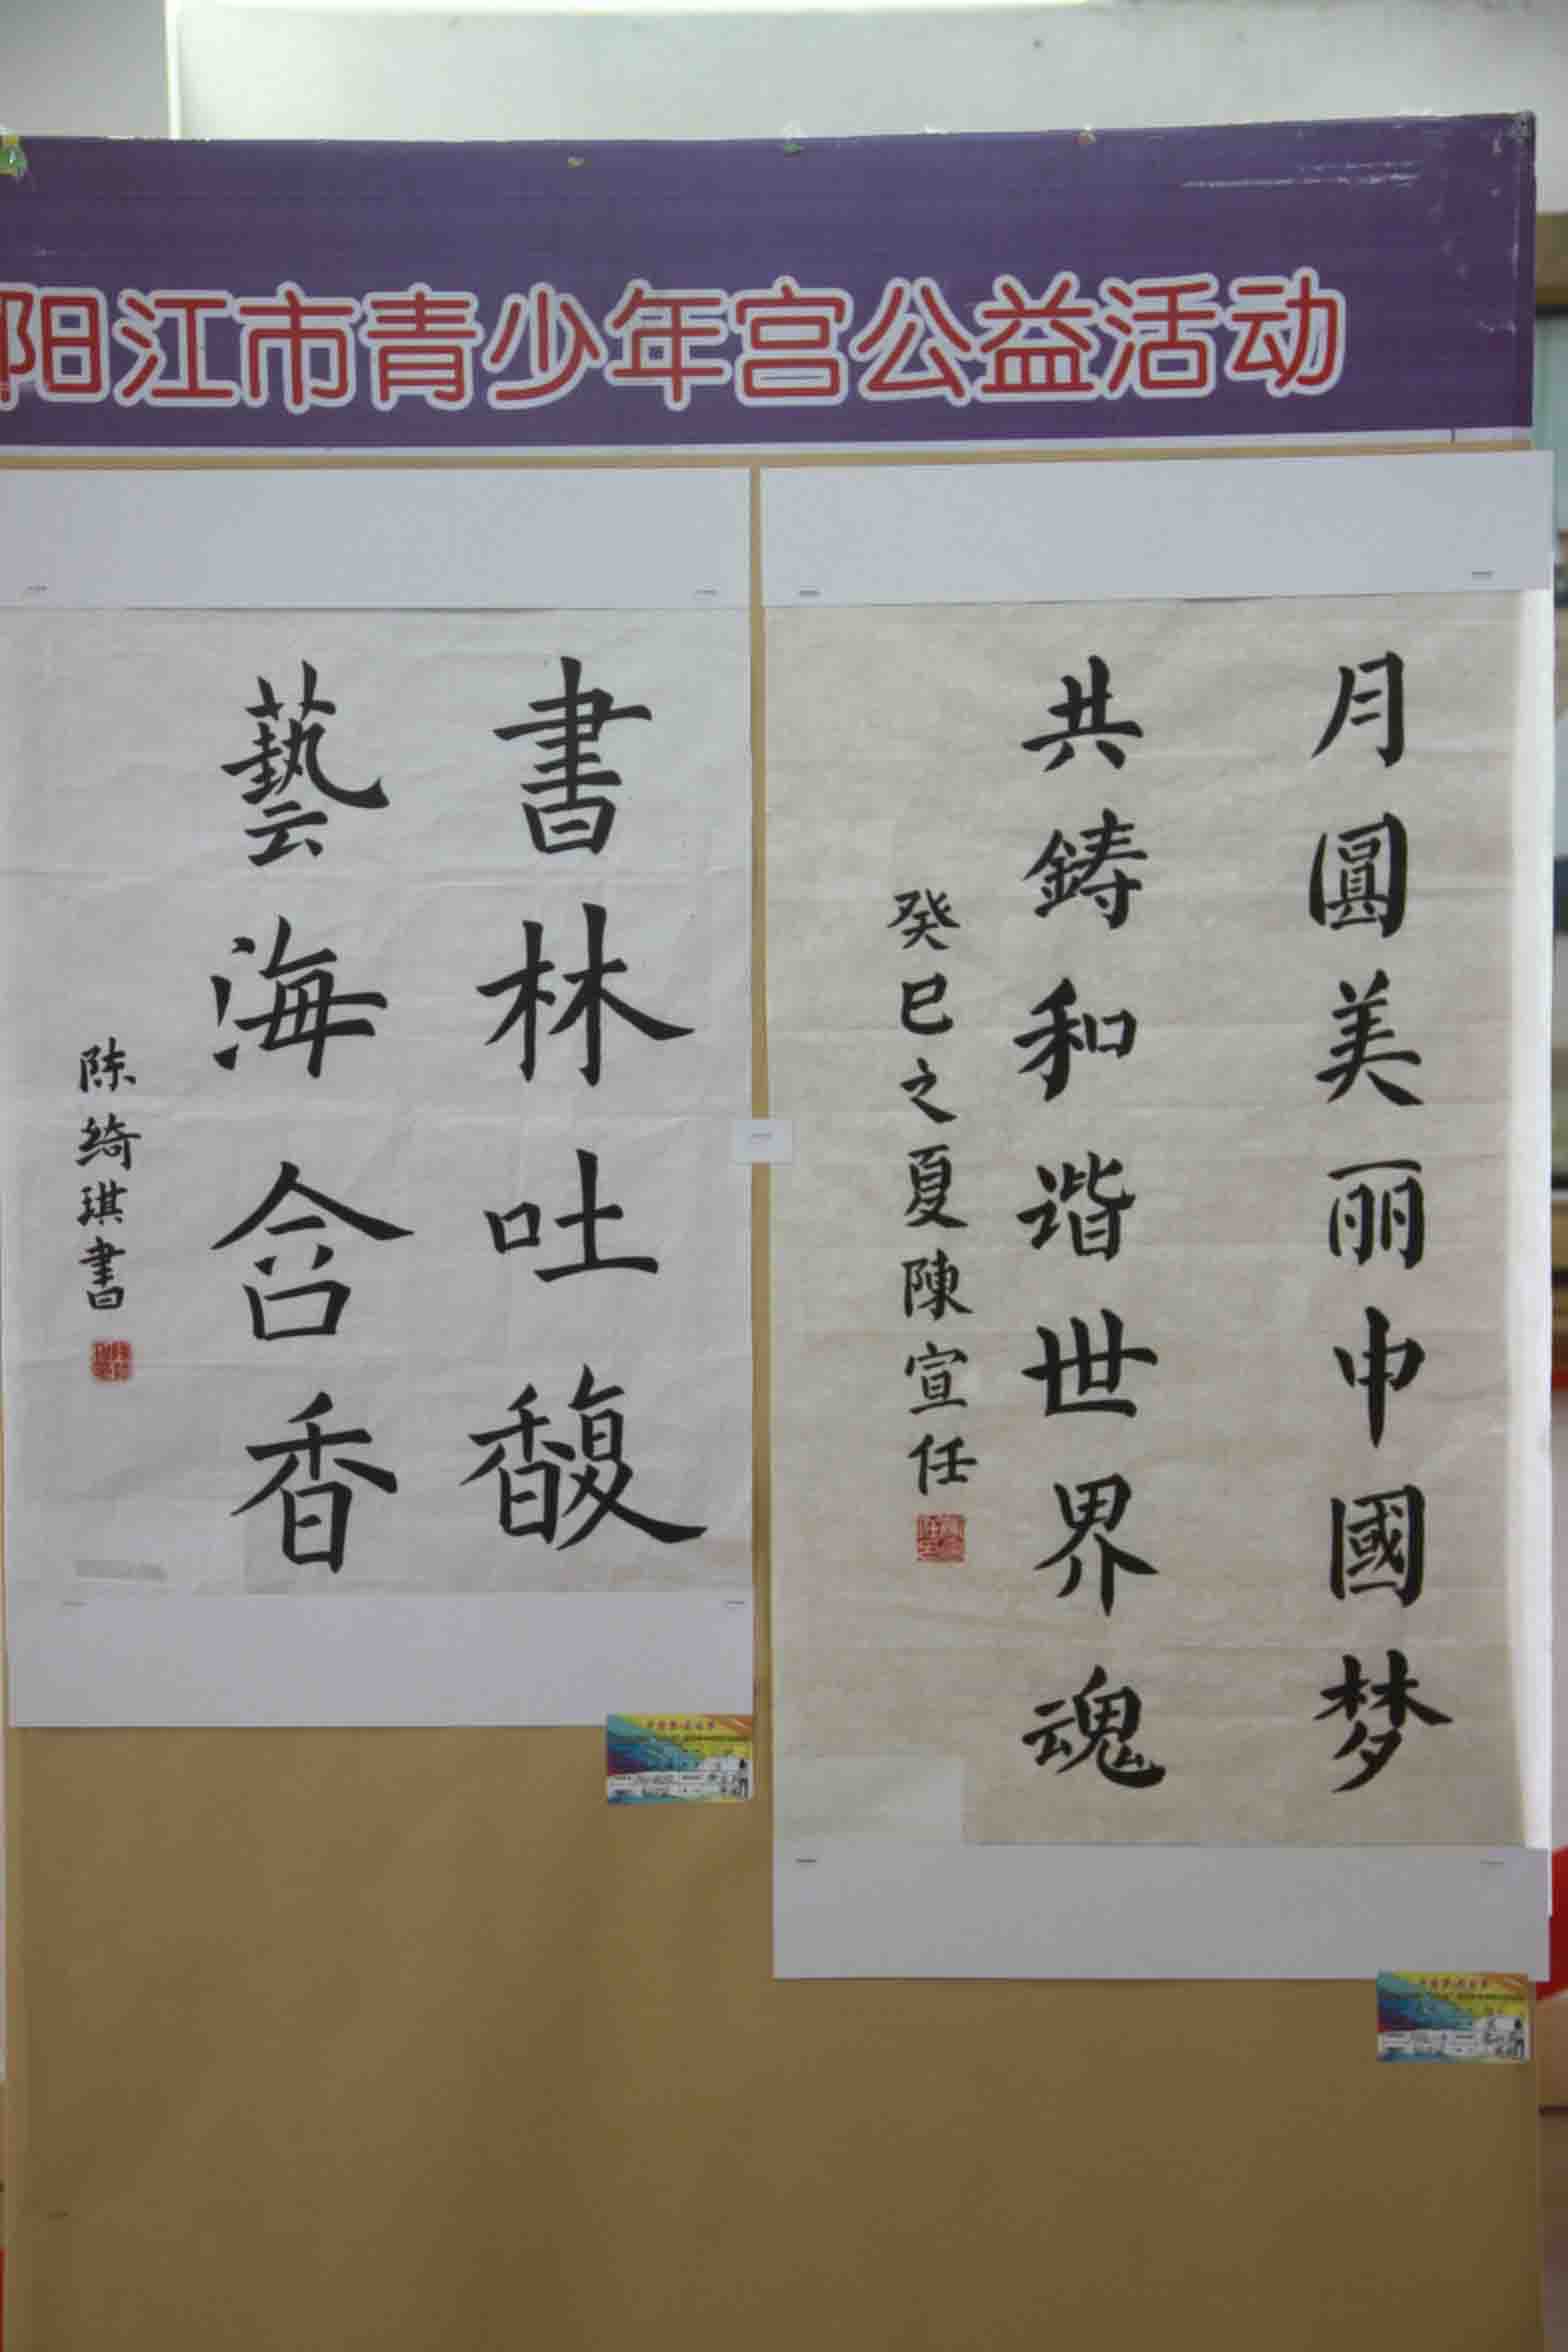 阳江市青少年宫公益活动
月圓美丽中國梦
共鑄和谐世界魂
癸巳之夏陳宣任
書林吐馥
藝海含香
陈绮琪書